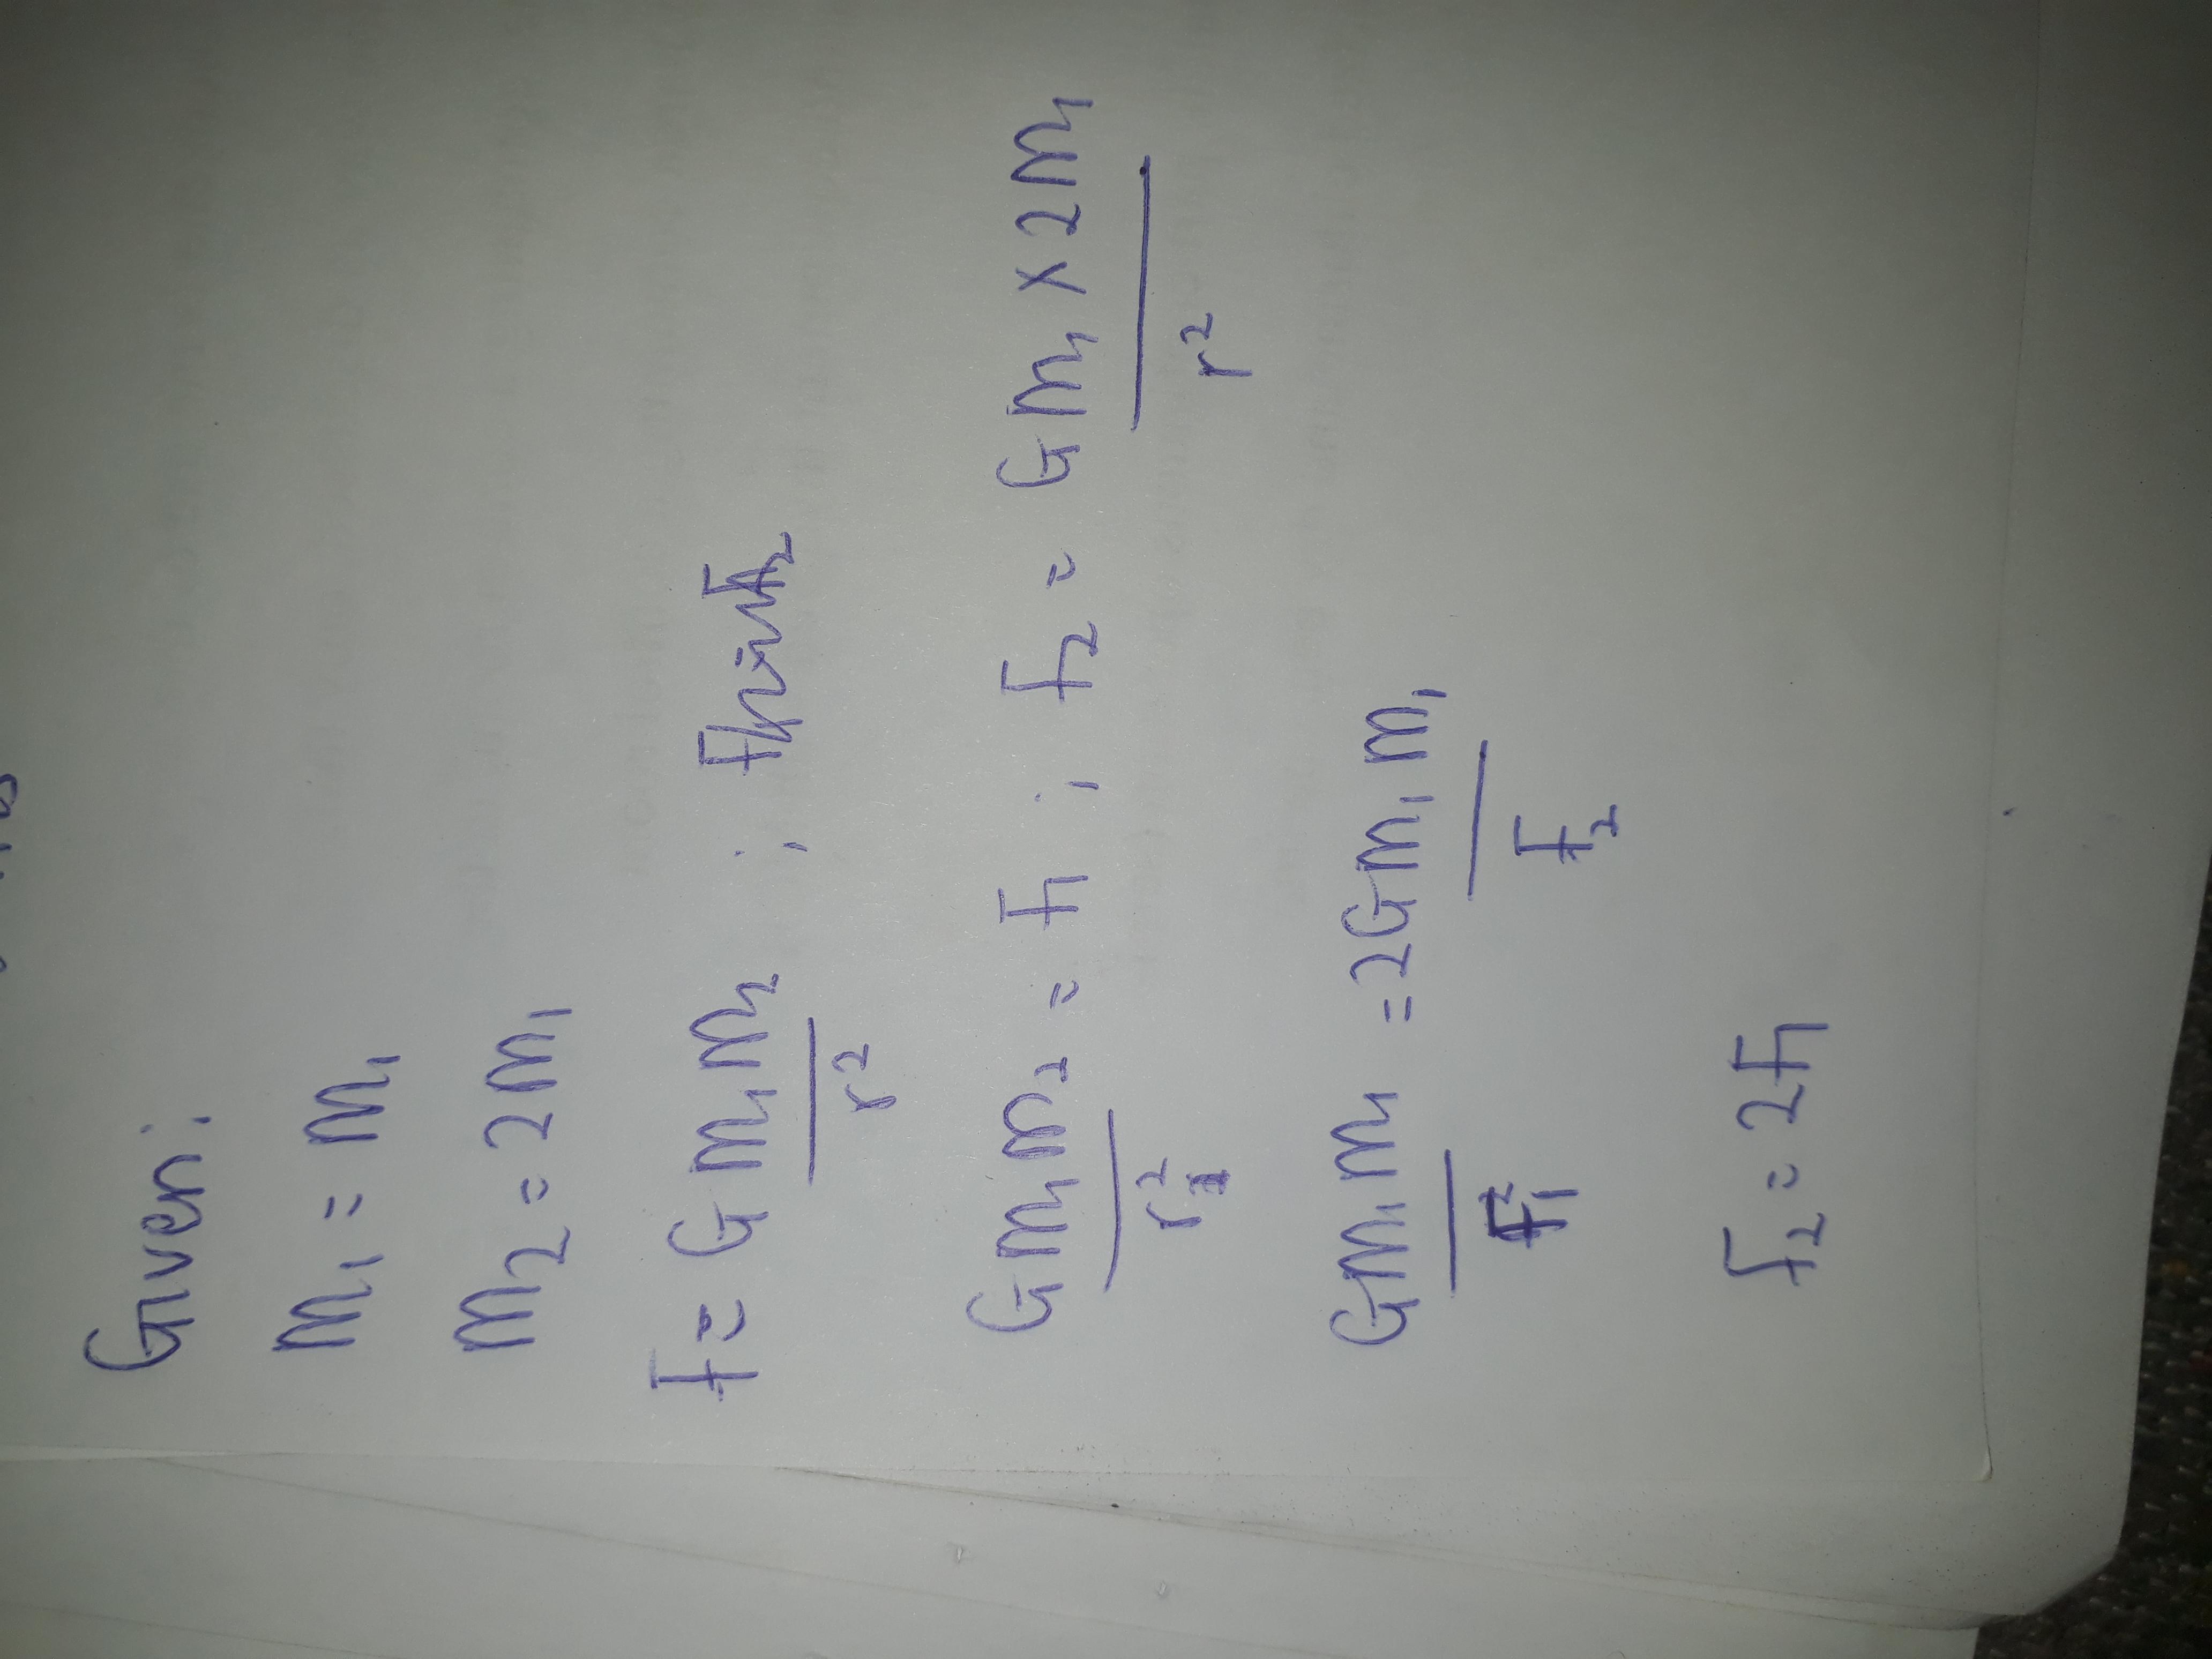 Given:
m₁ = m₁
m₂ = 2m₁
F = G m₁m₂ / r² ;
Gm₁m₂ / r² = F₁ ; F₂ = Gm₁ × 2m₁ / r²
Gm₁m₁ / F₁ = 2Gm₁m₁ / F₂
F₂ = 2F₁